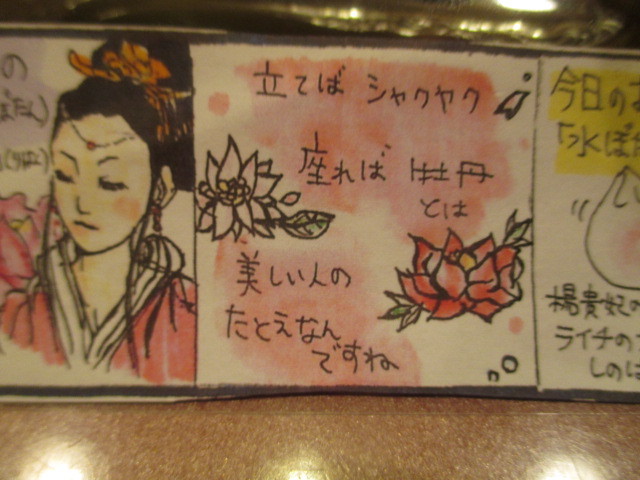 の
ぼたん)
立てば シャクヤク
座れば 牡丹
とは
美しい人の
たとえなん
ですね
今日の
「水ぼ
楊貴妃
ライチの
しのば